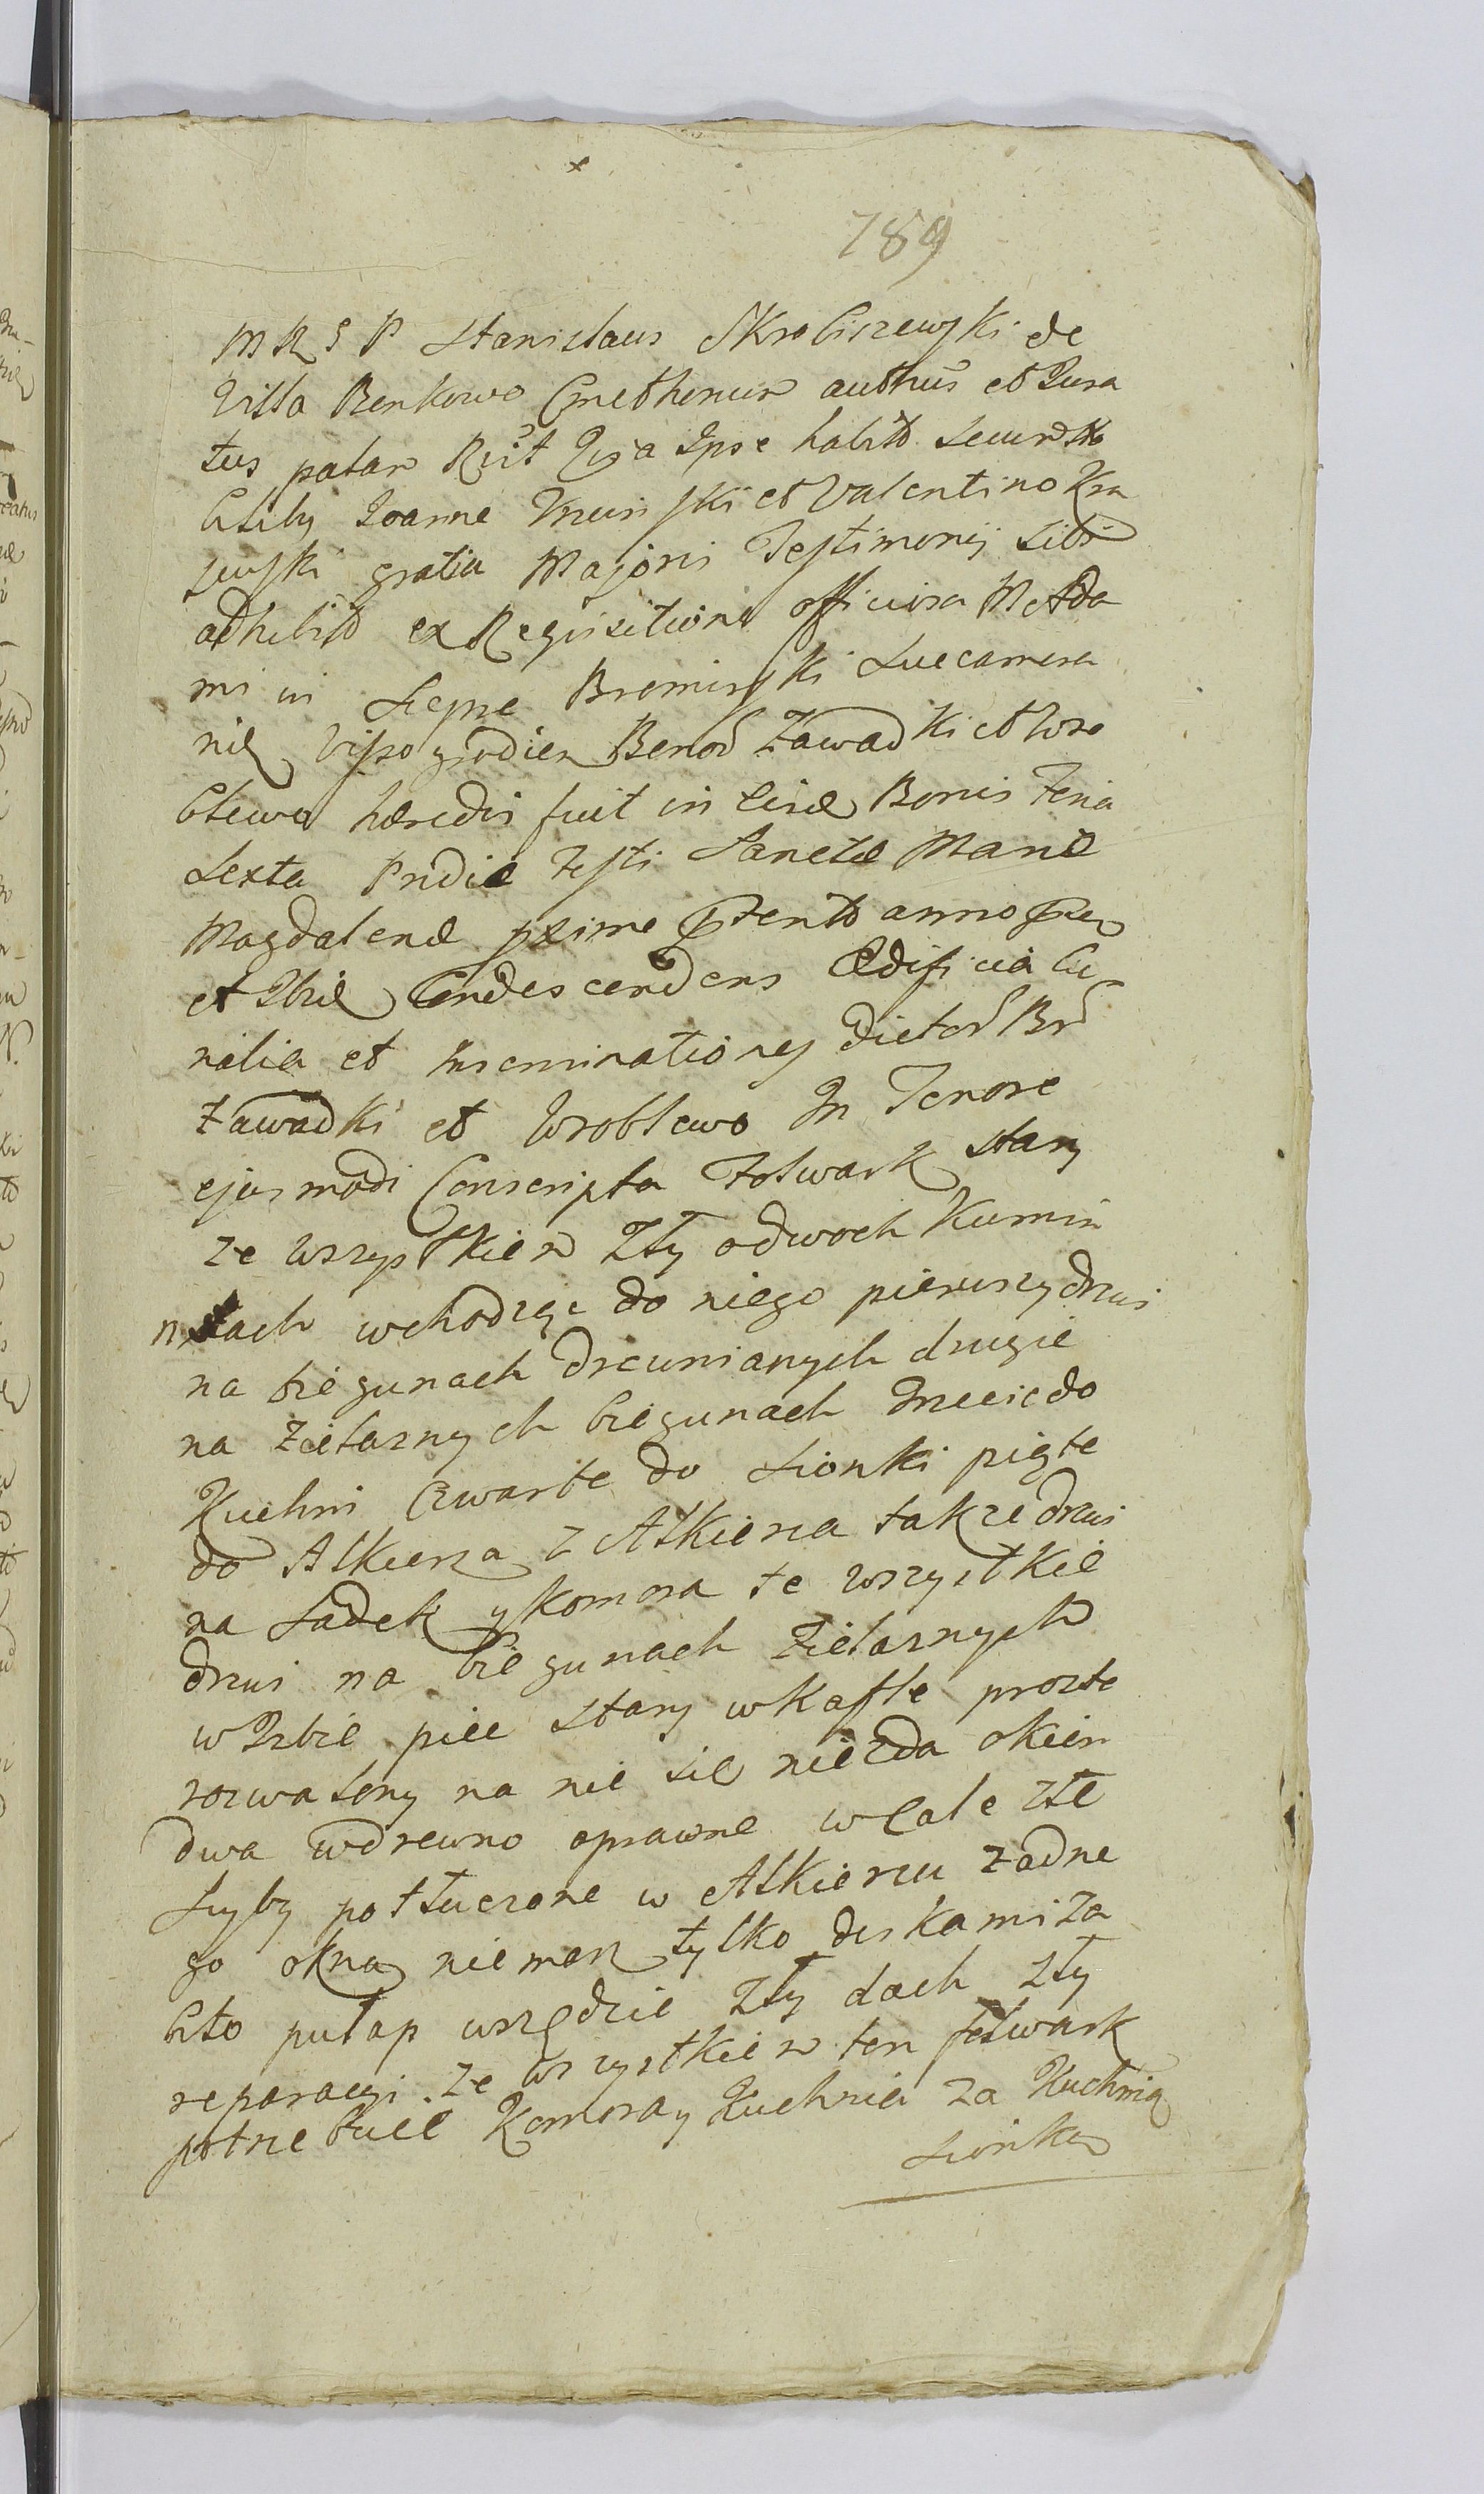 x
789
M R S P Stanislaus Skrobiszewski de
Villa Renkowo Cmethonum authus et Jura
tus palam Rit Qia Ipse habito secum No
bilibus Joanne et Valentino Kra
jewski gratia Majoris Testimonij sibi
adhibito ex Reqvisitione officiosa M Ada
mi in Slepne Bromirski Succamera
rij Vissogrodien Bonor Zawadki et Wro
blewo hæredis fuit in eisd Bonis Feria
sexta Pridie Festi Sanctæ Mariæ
Magdalenæ pxime præterito anno præn
et Ibid Condescendens Ædificia Cu
rialia et Inseminationes dictor Br
Zawadki et Wroblewo In Tenore
ejusmodi Conscripta Folwark stary
ze wszystkiem Zły odwoch Kumin
nach wchodząc do niego pierwszy drzwi
na biegunach drewnianych drugie
na Zielaznych biegunach Trzecie do
Kuchni Czwarte do Sionki piąte
do Alkierza z Alkierza takze drzwi
na Sadek y komora te wszystkie
drzwi na biegunach Zielaznych
w Izbie piec stary w Kafle proste
rozwalony na nic sie niezda okien
dwa w drewno oprawne w Cale złe
Szyby potłuczone w Alkierzu zadne
go okna niemasz tylko deskami za
bito pułap wszędzie Zły dach zły
reparacyi ze wszystkiem ten folwark
potrzebuie Komora y Kuchnia za Kuchnią
Sionka